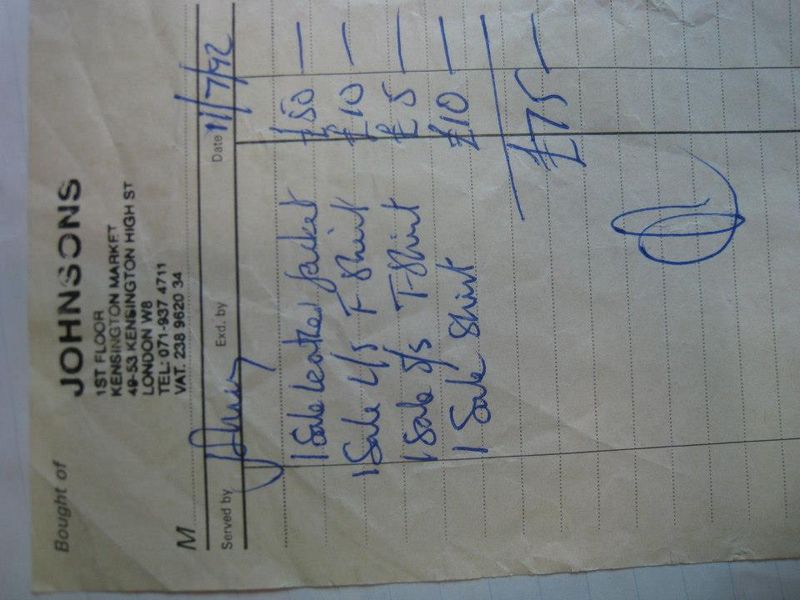 Bought of
JOHNSONS
1ST FLOOR
KENSINGTON MARKET
49-53 KENSINGTON HIGH ST
LONDON W8
TEL: 071-937 4711
VAT. 238 9620 34
M
Served by Johnny Exd. by Date 11/7/92
1 Sale Leather Jacket £50 —
1 Sale L/S T Shirt £10 —
1 Sale S/S T-Shirt £5 —
1 Sale Shirt £10 —
£75 —